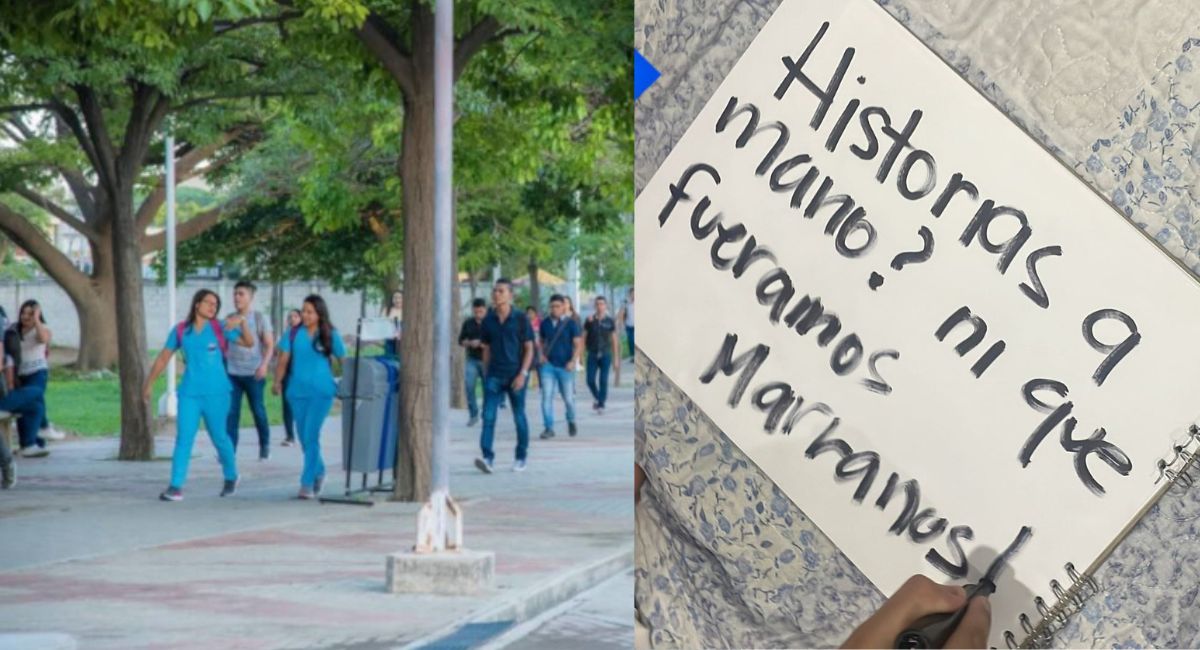 Historias a
mano? ni que
fueramos
Marranos!